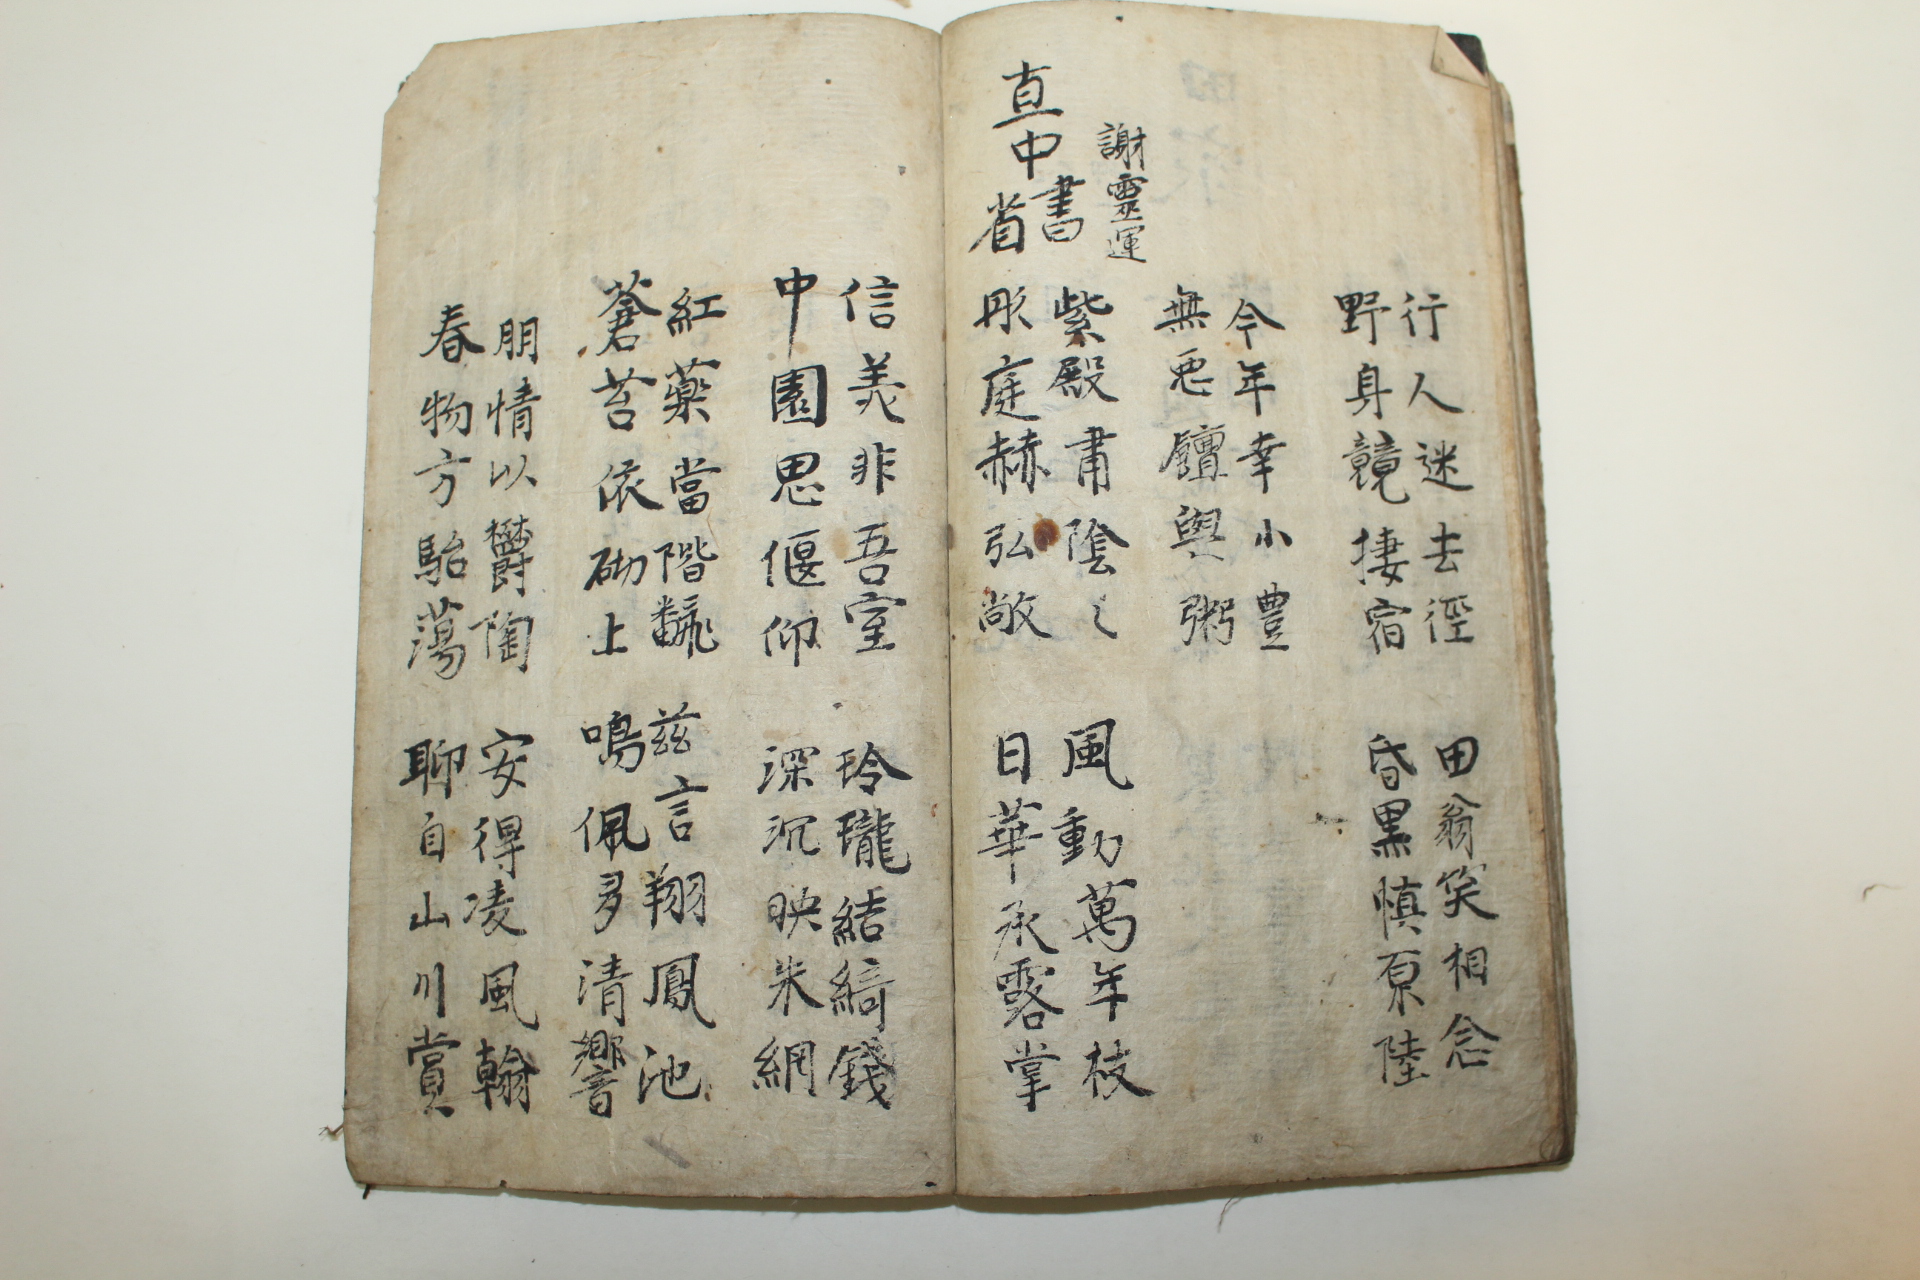 行人迷去徑
野身競捿宿
田翁笑相念
昏黑愼原陸
今年幸小豊
無惡饘與粥
謝靈運
直中書省
紫殿肅陰〻
彤庭赫弘敞
風動萬年枝
日華承露掌
玲瓏結綺錢
深沉映朱網
紅藥當階飜
蒼苔依砌上
茲言翔鳳池
鳴佩多清響
信美非吾室
中園思偃仰
朋情以鬱陶
春物方駘蕩
安得凌風翰
聊自山川賞